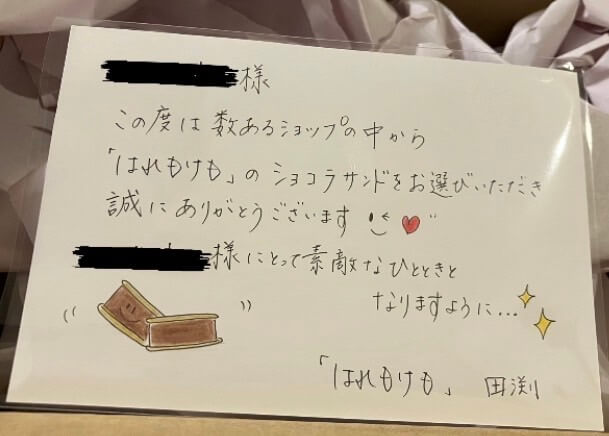 様
この度は数あるショップの中から
「はれもけも」のショコラサンドをお選びいただき
誠にありがとうございます
様にとって素敵なひとときと
なりますように…
「はれもけも」 田渕